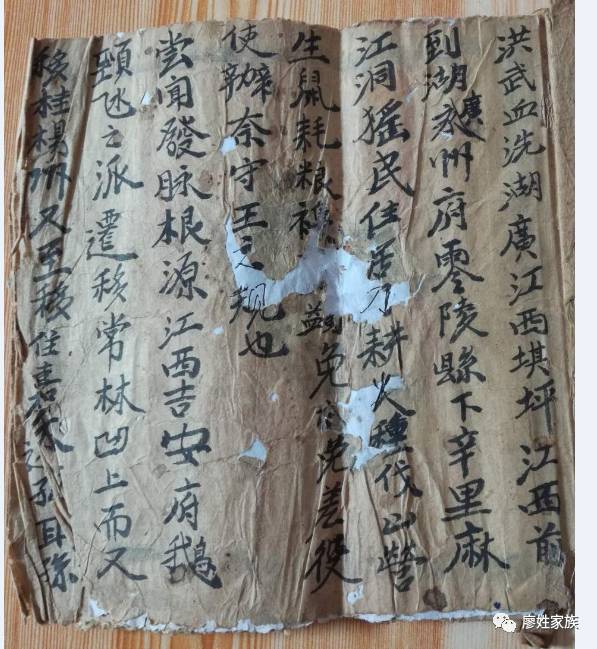 洪武血洗湖廣江西填坪 江西前
到湖廣永州府零陵縣下辛里麻
江洞猺民住居刀耕火種伐山營
生鼠耗粮 免 差役
使辦奈守王之規也
嘗闻發脉根源江西吉安府鵝
頸丘之派遷移常林凹上而又
移桂楊州又至移住嘉禾之 耳孫
廖姓家族